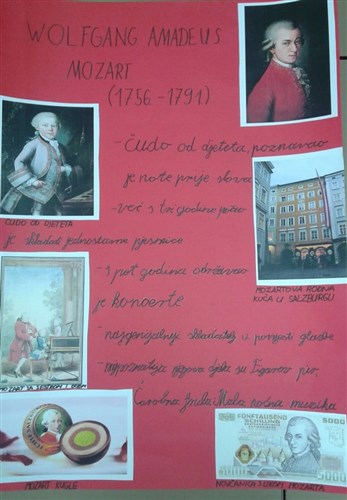 WOLFGANG AMADEUS
MOZART
(1756 - 1791)
- ČUDO od djeteta, poznavao
je note prije slova
- već s tri godine
ČUDO OD DJETETA
je skladao jednostavne pjesmice
MOZARTOVA RODNA
KUĆA U SALZBURGU
- s pet godina održavao
je koncerte
- najgenijalniji skladatelj u povijesti glazbe
MOZART SA SESTROM I OCEM
- najpoznatija njegova djela su Figarov pir,
Čarobna frula, Mala noćna muzika
FÜNFTAUSEND
SCHILLING
5000
5000
MOZART KUGLE
NOVČANICA S LIKOM MOZARTA